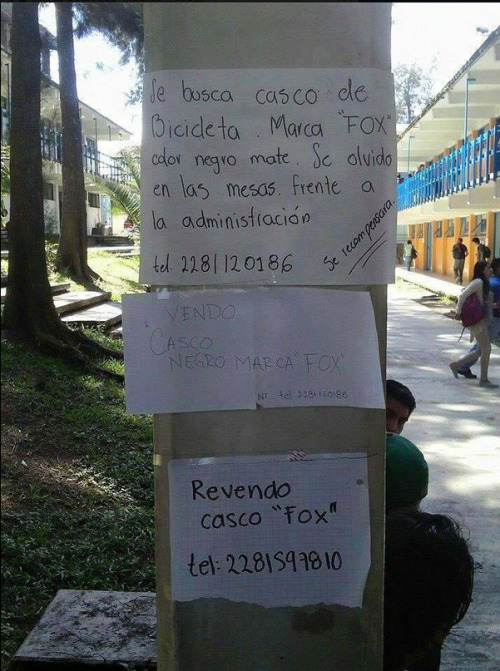 Se busca casco de
Bicicleta. Marca "FOX"
color negro mate. Se olvido
en las mesas. Frente a
la administración
Se recompensara.
tel. 2281120186
VENDO
CASCO
NEGRO MARCA "FOX"
NT. tel 2281160186
Revendo
casco "Fox"
tel: 2281597810